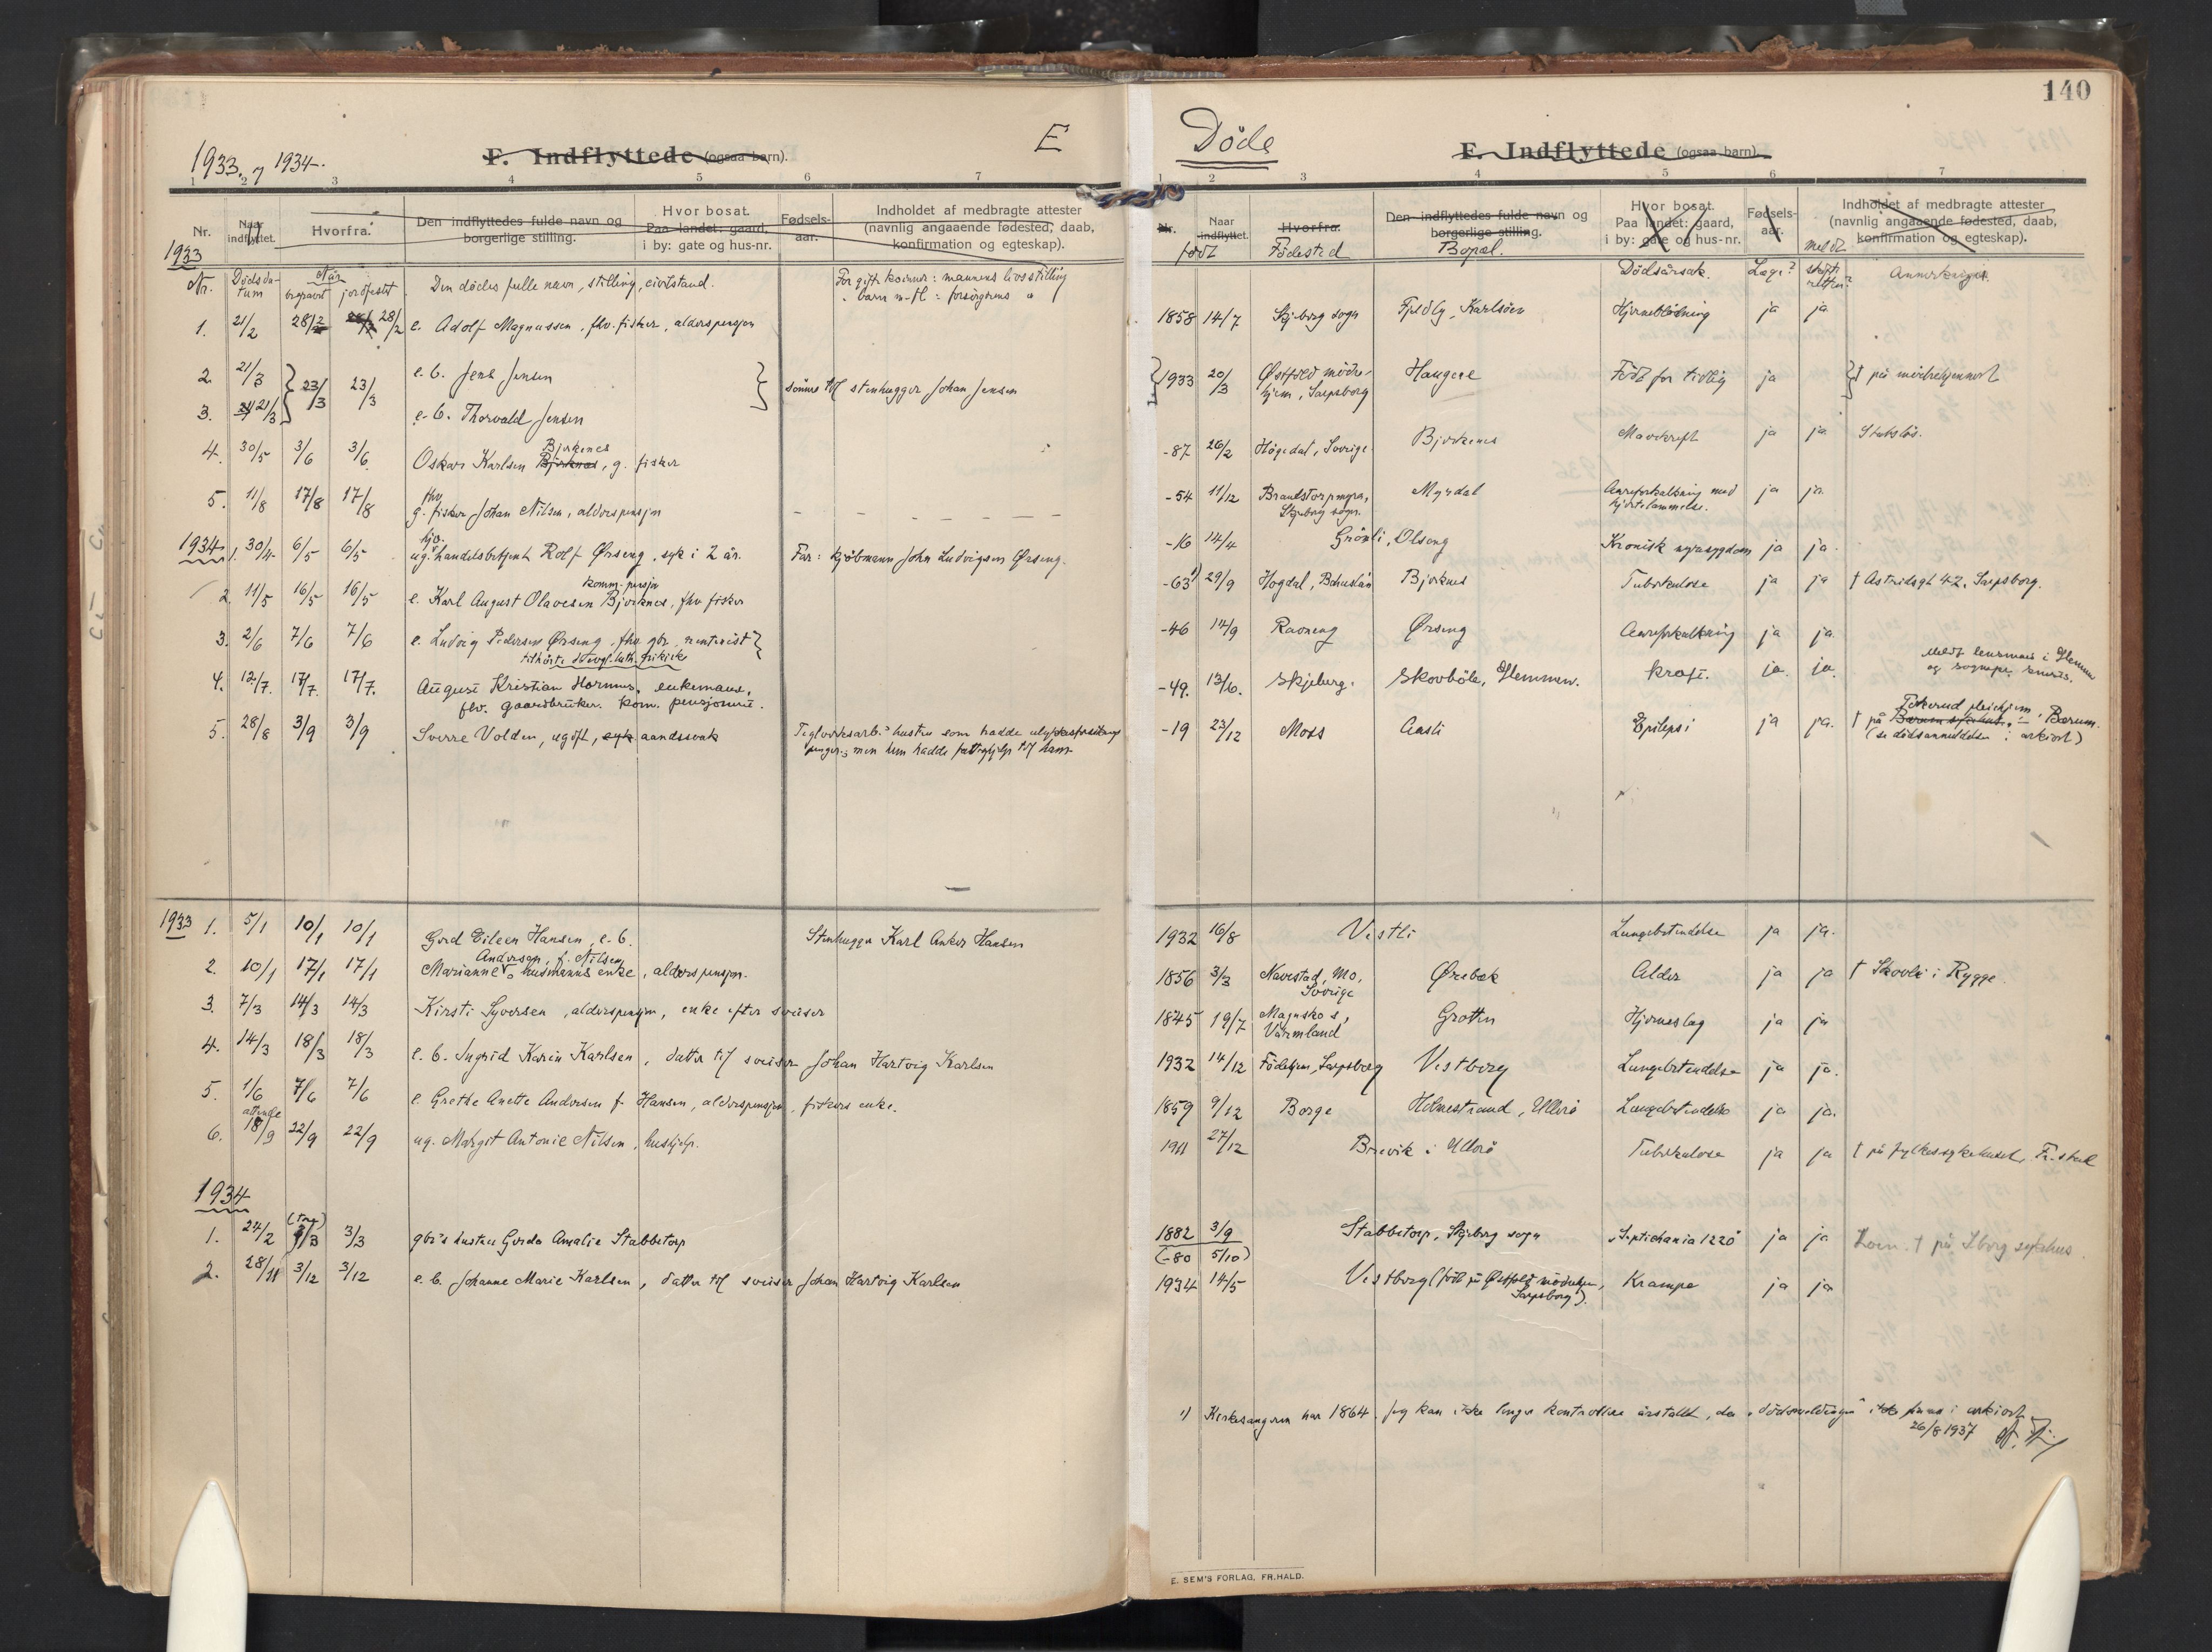 140
1933 og 1934.
F. Indflyttede (ogsaa barn).
E
Døde
F. Indflyttede (ogsaa barn).
1 2 3 4 5 6 7
1 2 3 4 5 6 7
Nr. Naar indflyttet. Hvorfra. Den indflyttedes fulde navn og borgerlige stilling. Hvor bosat. Paa landet: gaard, i by: gate og hus-nr. Fødsels-aar. Indholdet af medbragte attester (navnlig angaaende fødested, daab, konfirmation og egteskap).
Nr. Naar indflyttet. Hvorfra. Den indflyttedes fulde navn og borgerlige stilling. Hvor bosat. Paa landet: gaard, i by: gate og hus-nr. Fødsels-aar. Indholdet af medbragte attester (navnlig angaaende fødested, daab, konfirmation og egteskap).
født Födested Bopel.
1933
Nr. Dødsda-tum Når begravet jordfestet Den dödes fulle navn, stilling, civilstand. For gift kvinner: mannens livsstilling
" barn : forsörgerens "
Dödsårsak. Læge? meldt skifteretten? Anmerkninger.
1. 21/2 28/2 28/2 e. Adolf Magnussen, fhv. fisker, alderspensjon 1858 14/7 Skjeberg sogn Karlsöen Hjerneblödning ja ja
2. 21/3 23/3 23/3 e. b. Jens Jensen sönner til stenhugger Johan Jensen 1933 20/3 Østfold mödrehjem, Sarpsborg Haugene Född for tidlig ja † på mödrehjemmet
3. 21/3 e. b. Thorvald Jensen
4. 30/5 3/6 3/6 Oskar Karlsen Bjerkenes, g. fisker -87 26/2 Högedal, Sverige Bjerkenes Mavekreft ja ja Statslös.
5. 11/8 17/8 17/8 g. fhv. fisker Johan Nilsen, alderspensjon -54 11/12 Brandstorpmyra, Skjeberg sogn. Myrdal Aareforkalkning med hjertelammelse. ja ja.
1934 1. 30/4 6/5 6/5 ug. handelsbetjent Rolf Ørseng, syk i 2 år. Far: kjöbmann John Ludvigsen Ørseng. -16 14/4 Grönli, Olseng Kronisk nyresygdom ja ja.
2. 11/5 16/5 16/5 e. Karl August Olavesen Bjerknes, fhv fisker komm. pensjon -63 1) 29/9 Hogdal, Bohuslän Bjerknes Tuberkulose ja ja † Astridsgt. 42, Sarpsborg.
3. 2/6 7/6 7/6 e. Ludvig Pedersen Ørseng, fhv. gbr., rentenist -46 14/9 Ramseng Ørseng Aareforkalkning ja ja.
tilhörte d. evgl. luth. frikirke
4. 12/7. 17/7. 17/7. August Kristian Hornnes, enkemand, flv. gaardbruker. kom. pensjonist. -49. 13/6. Skjeberg. Skovböle, Glemmen. Kræft. ja. ja. Meldt lensmann i Glemmen og sognepr.
5. 28/8 3/9 3/9 Sverre Volden, ugift, syk aandssvak Teglverksarb.s hustru som hadde
penger; men hun hadde fattighjelp til ham -19 23/12 Moss Aasli Epilepsi ja ja. † på pleiehjem i Bærum.
(se dödsanmeldelsen i arkivet)
1933 1. 5/1 10/1 10/1 Gerd Eileen Hansen, e. b. Stenhugger Karl Anker Hansen 1932 16/8 Vestli Lungebetendelse ja ja.
2. 10/1 17/1 17/1 Marianne Andersen, f. Nilsen husmanns enke, alderspensjon. 1856 3/3 Navestad, Mo, Sverige Ørebek Alder ja ja † Skovli i Rygge.
3. 7/3 14/3 14/3 Kirsti Syversen, alderspensjon, enke efter sveiser 1845 19/7 Magnskog, Värmland Grotten Hjerneslag ja ja
4. 14/3 18/3 18/3 e. b. Ingrid Karin Karlsen, datter til sveiser Johan Hartvig Karlsen 1932 14/12 Födehjem, Sarpsborg Vestberg Lungebetendelse ja ja.
5. 1/6 7/6 7/6 e. Grethe Anette Andersen f. Hansen, alderspensjon, fiskers enke. 1859 9/12 Borge Holmestrand, Ullerö Lungebetendelse ja ja.
6. attende 18/9 22/9 22/9 ug. Margit Antonie Nilsen, hushjelp. 1911 27/12 Brevik i Ullerö Tuberkulose ja ja † på fylkessykehuset, Fr.stad
1934
1. 24/2 3/3 3/3 gbr's hustru Gerda Amalie Stabbetorp 1882 3/9 (-80 5/10) Stabbetorp, Skjeberg sogn ja ja † på S.borg sykehus.
2. 28/11 3/12 3/12 e. b. Johanne Marie Karlsen, datter til sveiser Johan Hartvig Karlsen 1934 14/5 Vestberg (född på Østfold mödrehjem, Sarpsborg). Krampe ja ja
1) Kirkesangeren har 1864. Jeg kan ikke lenger kontrollere årstallet, da "dödsmeldingen" ikke finnes i arkivet
26/8 1937
E. SEM'S FORLAG, FR.HALD.